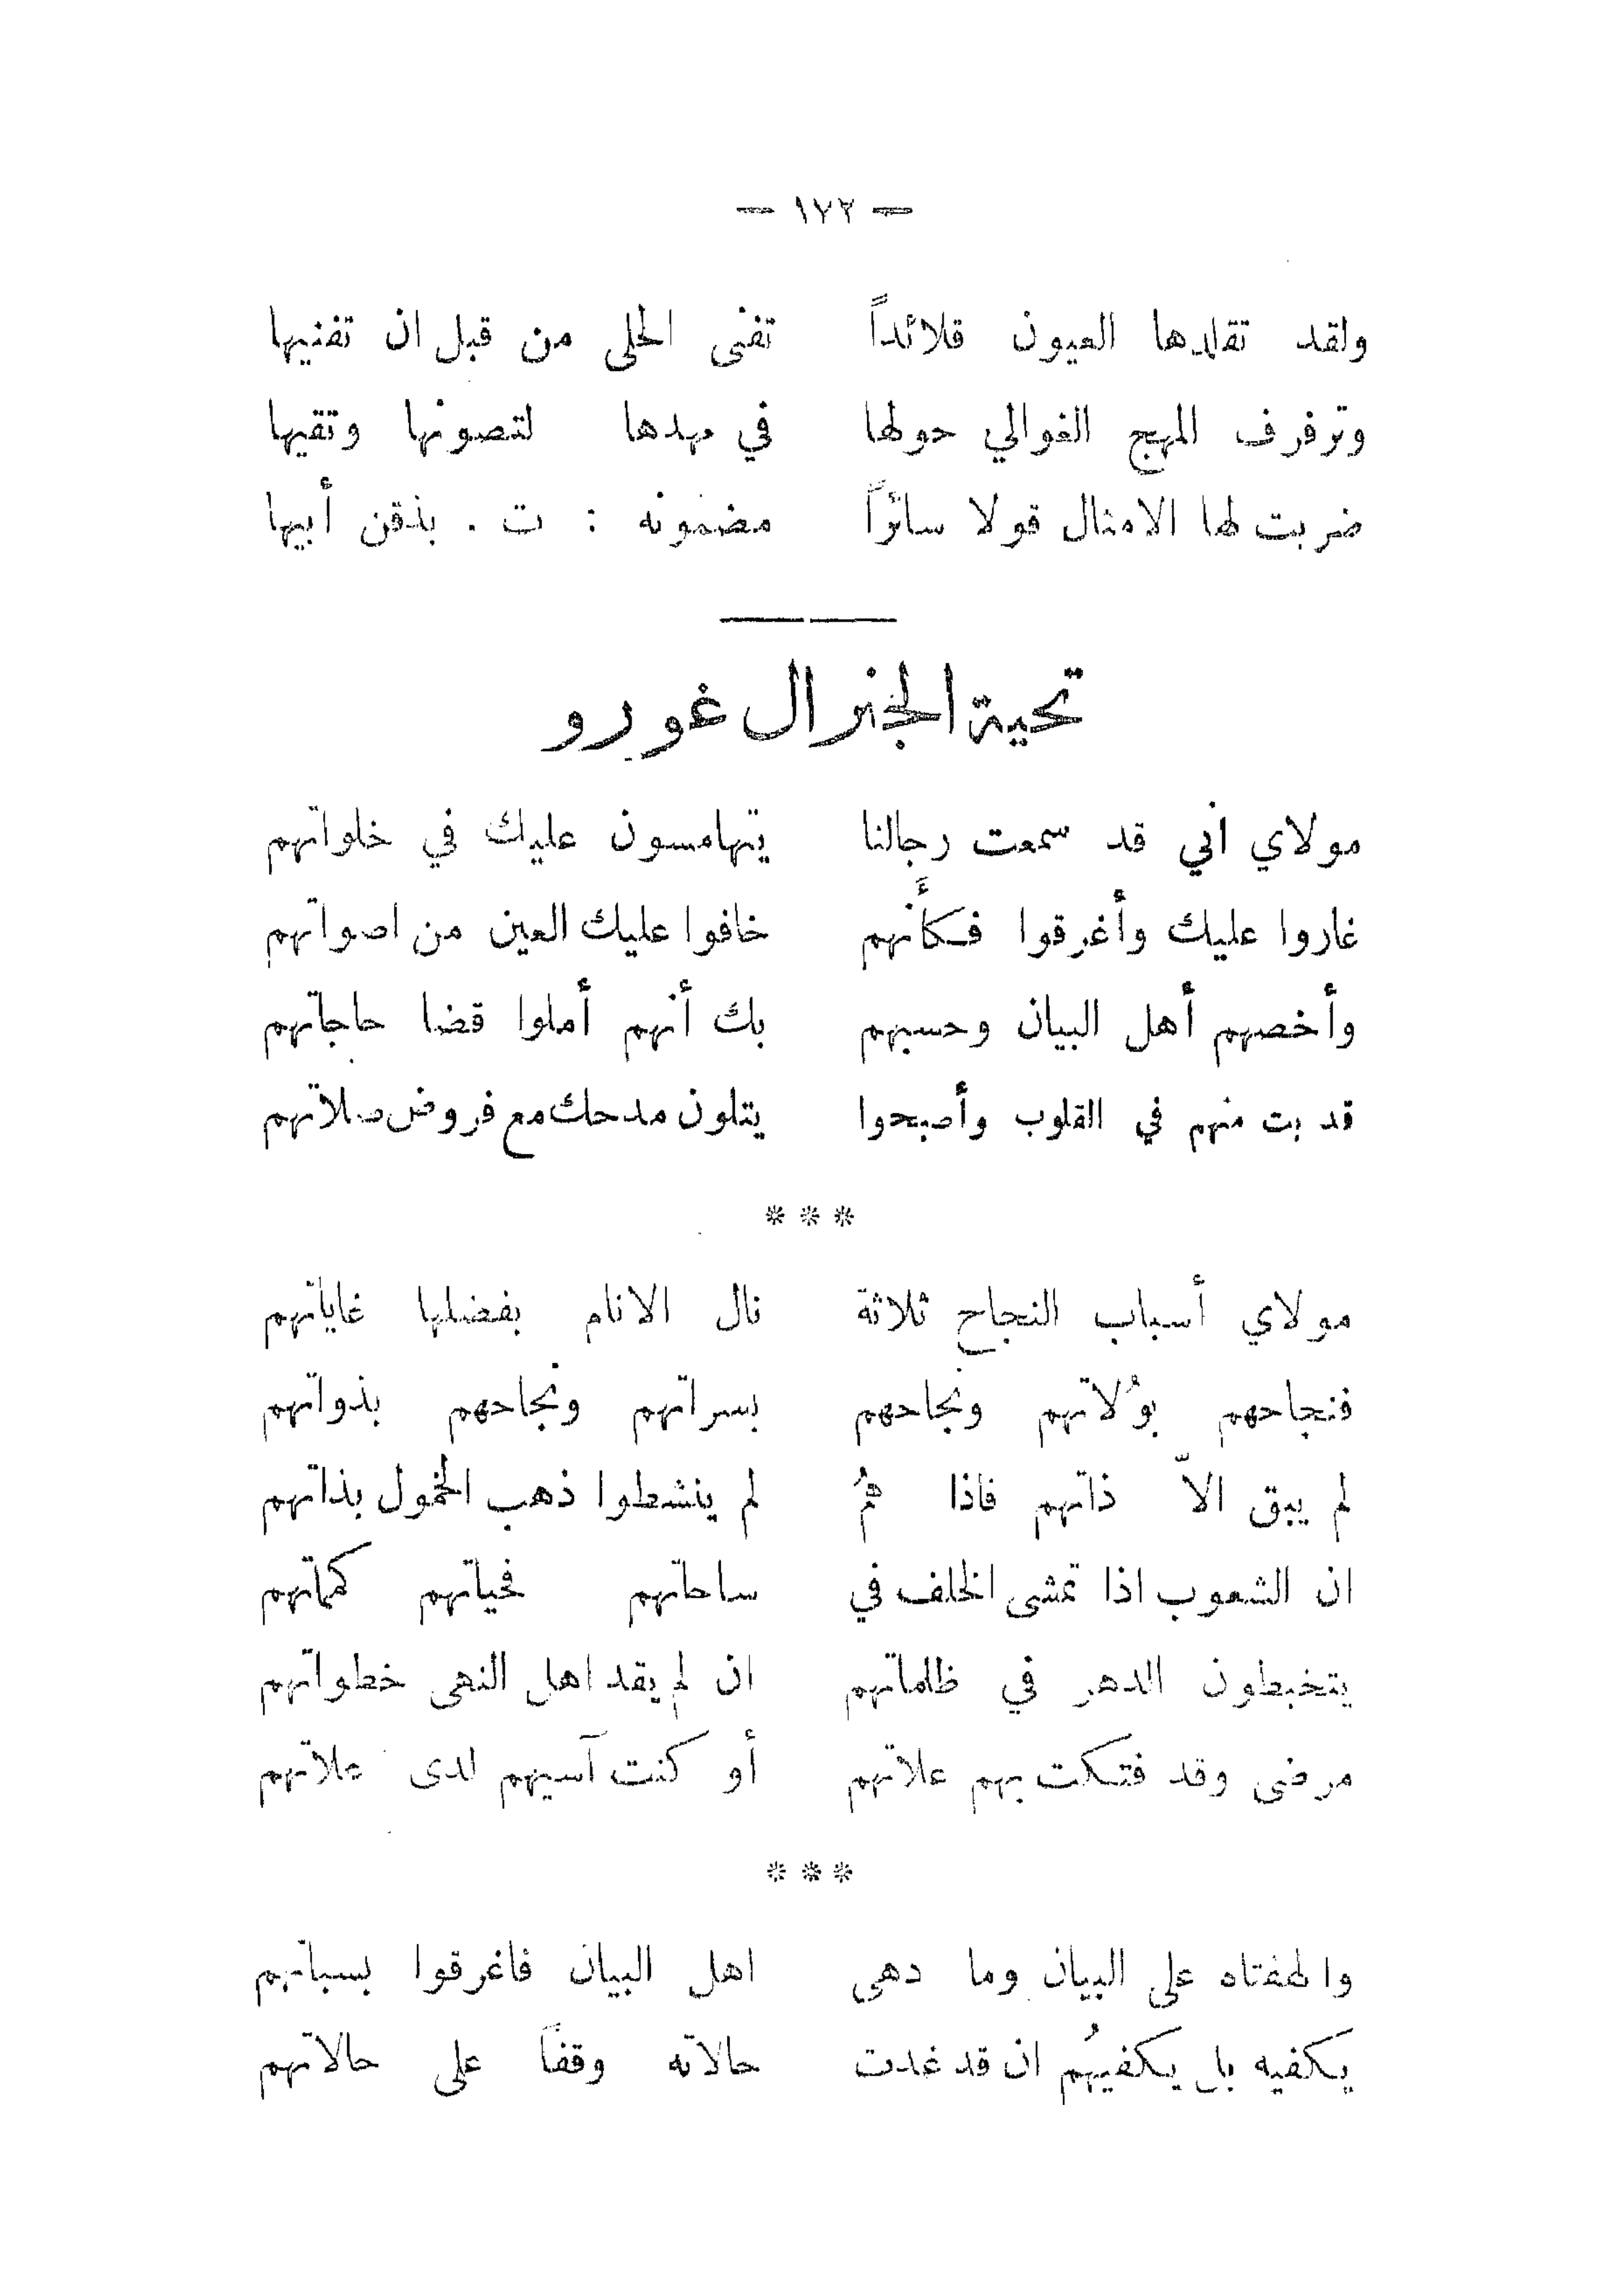 — ١٧٢ —
ولقد تقلدها العيون قلائداً تفنى الحلى من قبل ان تفنيها
وترفرف المهج الغوالي حولها في مهدها لتصونها وتقيها
ضربت لها الامثال قولا سائراً مضمونه : ت . بذقن أبيها
تحية الجنرال غورو
مولاي اني قد سمعت رجالنا يتهامسون عليك في خلواتهم
غاروا عليك وأغرقوا فكأنهم خافوا عليك العين من اصواتهم
وأخصهم أهل البيان وحسبهم بك أنهم أملوا قضا حاجاتهم
قد بت منهم في القلوب وأصبحوا يتلون مدحك مع فروض صلاتهم
***
مولاي أسباب النجاح ثلاثة نال الانام بفضلها غاياتهم
فنجاحهم بوُلاتهم ونجاحهم بسراتهم ونجاحهم بذواتهم
لم يبق الاّ ذاتهم فاذا هُم لم ينشطوا ذهب الخمول بذاتهم
ان الشعوب اذا تمشى الخلف في ساحاتهم فحياتهم كمماتهم
يتخبطون الدهر في ظلماتهم ان لم يقد اهل النهى خطواتهم
مرضى وقد فتكت بهم علاتهم أو كنت آسيهم لدى علاتهم
***
والهفتاه على البيان وما دهى اهل البيان فاغرقوا بسباتهم
يكفيه بل يكفيهُم ان قد غدت حالاته وقفاً على حالاتهم